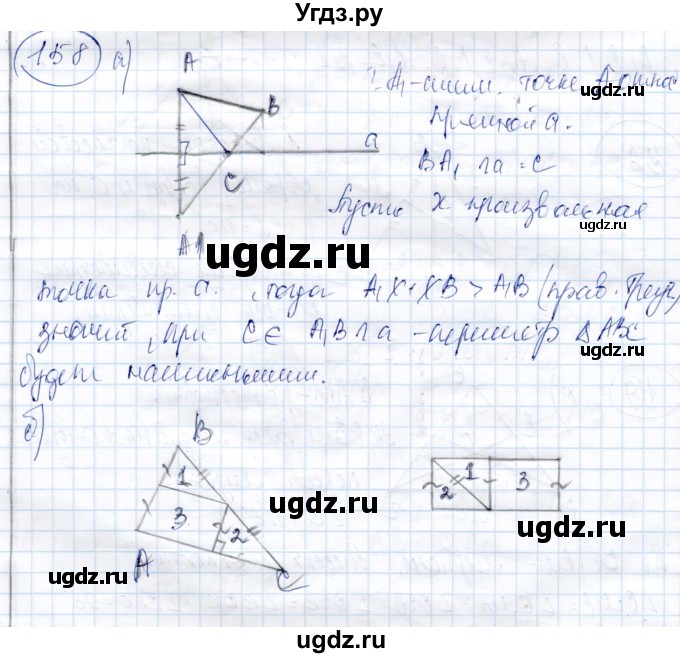 Угдз.ру
158 а)
A
B
a
C
A1
т. A₁-симм. точке A отна
прямой a.
BA₁ ∩ a = C
Пусть X произвольная
точка пр. a. , тогда A₁X + XB > A₁B (прав. Треуг.)
значит, при C ∈ A₁B ∩ a - периметр △ ABC
будет наименьшим.
б)
B
1
3
2
A
C
2
1
3
ugdz.ru
ugdz.ru
ugdz.ru
ugdz.ru
ugdz.ru
ugdz.ru
ugdz.ru
ugdz.ru
ugdz.ru